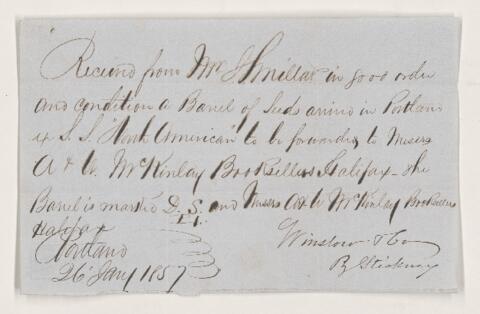 Received from Mr J Smillar in good order
and condition a Barrel of Seeds arrived in Portland
ex S. S. "North American" to be forwarded to Messrs
A & W. McKinlay Booksellers Halifax - the
Barrel is marked D. S. and Messrs A & W McKinlay Booksellers
Halifax
Portland
26 Jany 1857
Winslow & Co
By Stickney